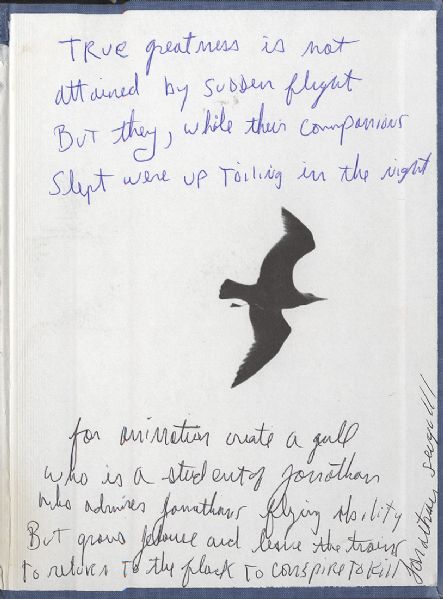 TRUE greatness is not
attained by SUDDEN flight
BUT they, while their companions
Slept were UP Toiling in the night
for animation create a gull
who is a student of Jonathan
who admires Jonathans flying Ability
But grows jealouse and leave the
To return To the flock To conspire To Kill
Jonathan Seagull!!